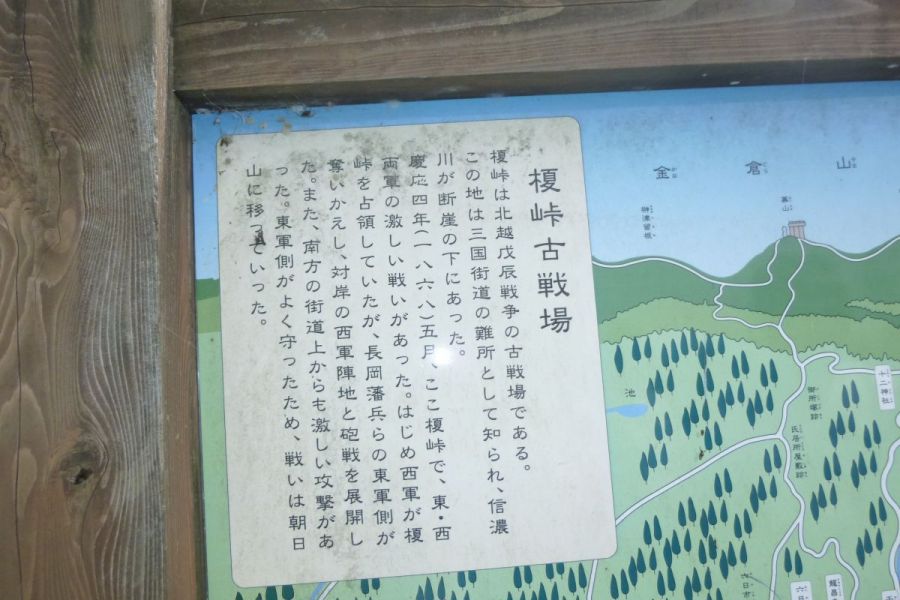 榎峠古戦場
榎峠は北越戊辰戦争の古戦場である。
この地は三国街道の難所として知られ、信濃
川が断崖の下にあった。
慶応四年(一八六八)五月、ここ榎峠で、東・西
両軍の激しい戦いがあった。はじめ西軍が榎
峠を占領していたが、長岡藩兵らの東軍側が
奪いかえし、対岸の西軍陣地と砲戦を展開し
た。また、南方の街道上からも激しい攻撃があ
った。東軍側がよく守ったため、戦いは朝日
山に移っていった。
金倉山
池
十二神社